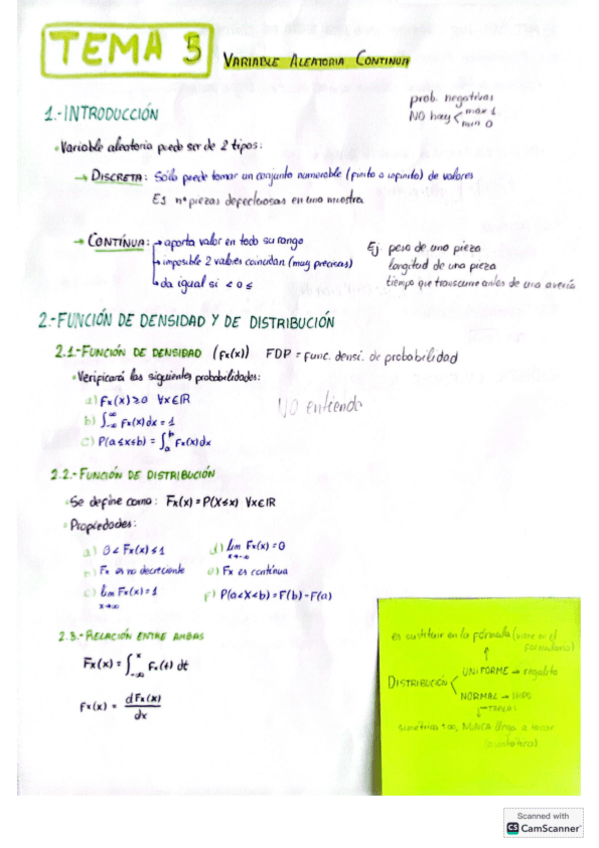 TEMA 5 VARIABLE ALEATORIA CONTINUA
prob. negativas
NO hay < max 1
min 0
1.- INTRODUCCIÓN
• Variable aleatoria puede ser de 2 tipos:
→ DISCRETA: Sólo puede tomar un conjunto numerable (finito o infinito) de valores
Ej nº piezas defectuosas en una muestra
→ CONTÍNUA: → aporta valor en todo su rango
→ imposible 2 valores coincidan (muy precisas)
→ da igual si < o ≤
Ej peso de una pieza
longitud de una pieza
tiempo que transcurre antes de una avería
2.- FUNCIÓN DE DENSIDAD Y DE DISTRIBUCIÓN
2.1- FUNCIÓN DE DENSIDAD (fx(x)) FDP = func. densi. de probabilidad
• Verificará las siguientes probabilidades:
a) fx(x) ≥ 0 ∀x∈IR
b) ∫_{-∞}^{∞} fx(x)dx = 1
c) P(a≤x≤b) = ∫_a^b fx(x)dx
NO entiendo
2.2- FUNCIÓN DE DISTRIBUCIÓN
• Se define como: Fx(x) = P(X≤x) ∀x∈IR
• Propiedades:
a) 0 < Fx(x) ≤ 1
b) Fx es no decreciente
c) lim Fx(x) = 1
x→∞
d) lim Fx(x) = 0
x→-∞
e) Fx es contínua
f) P(a<X<b) = F(b) - F(a)
2.3- RELACIÓN ENTRE AMBAS
Fx(x) = ∫_{-∞}^{x} fx(t) dt
fx(x) = dFx(x)/dx
es sustituir en la fórmula (viene en el formulario)
↑
DISTRIBUCIÓN < UNIFORME → regalito
NORMAL → IMPO
→ TABLAS
simétrica +∞, NUNCA llega a tocar
(asíntotica)
Scanned with
CS CamScanner